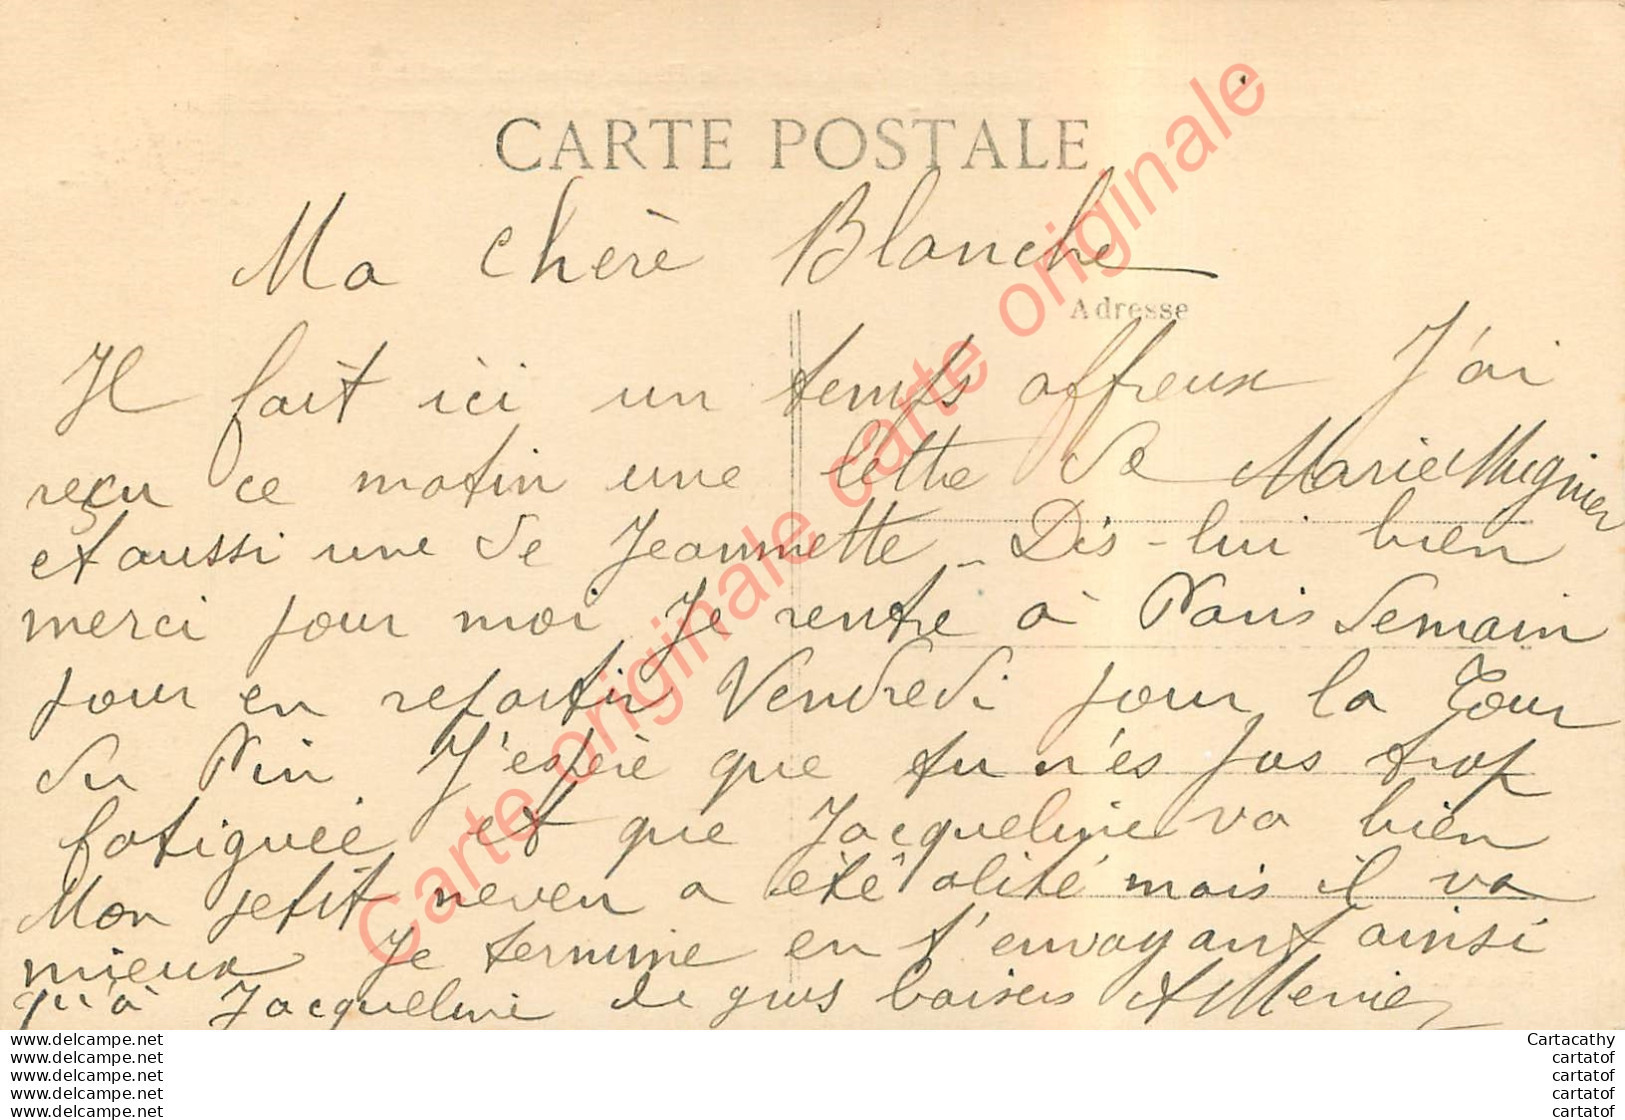 CARTE POSTALE
Ma chère Blanche
Adresse
Il fait ici un temps affreux J'ai
reçu ce matin une lettre de Marie Mugnier
et aussi une de Jeannette - Dis-lui bien
merci pour moi Je rentre à Paris demain
pour en repartir Vendredi pour la Tour
du Pin J'espère que tu n'es pas trop
fatiguée et que Jacqueline va bien
Mon petit neveu a été alité mais il va
mieux Je termine en t'envoyant ainsi
qu'à Jacqueline de gros baisers
Carte originale carte originale carte originale
www.delcampe.net
www.delcampe.net
www.delcampe.net
www.delcampe.net
www.delcampe.net
Cartacathy
cartatof
cartatof
cartatof
cartatof